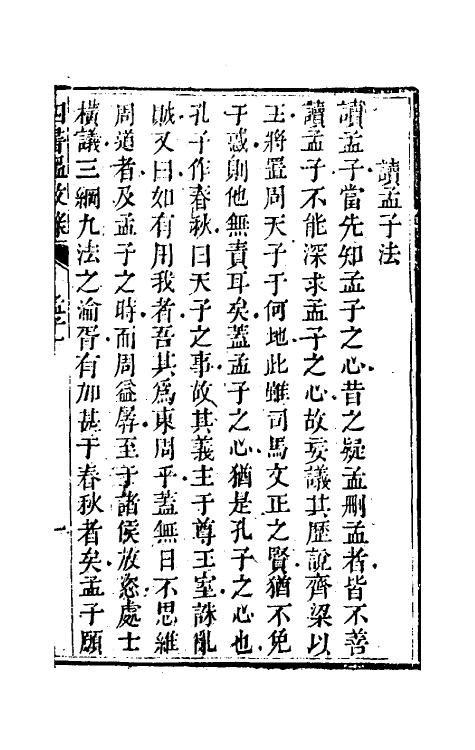 讀孟子法
讀孟子當先知孟子之心昔之疑孟刪孟者皆不善
讀孟子不能深求孟子之心故妄議其歷說齊梁以
王將置周天子于何地此雖司馬文正之賢猶不免
于惑則他無責耳矣蓋孟子之心猶是孔子之心也
孔子作春秋曰天子之事故其義主于尊王室誅亂
賊又曰如有用我者吾其爲東周乎蓋無日不思維
周道者及孟子之時而周益孱至于諸侯放恣處士
橫議三綱九法之淪胥有加甚于春秋者矣孟子願
四書
孟子
一